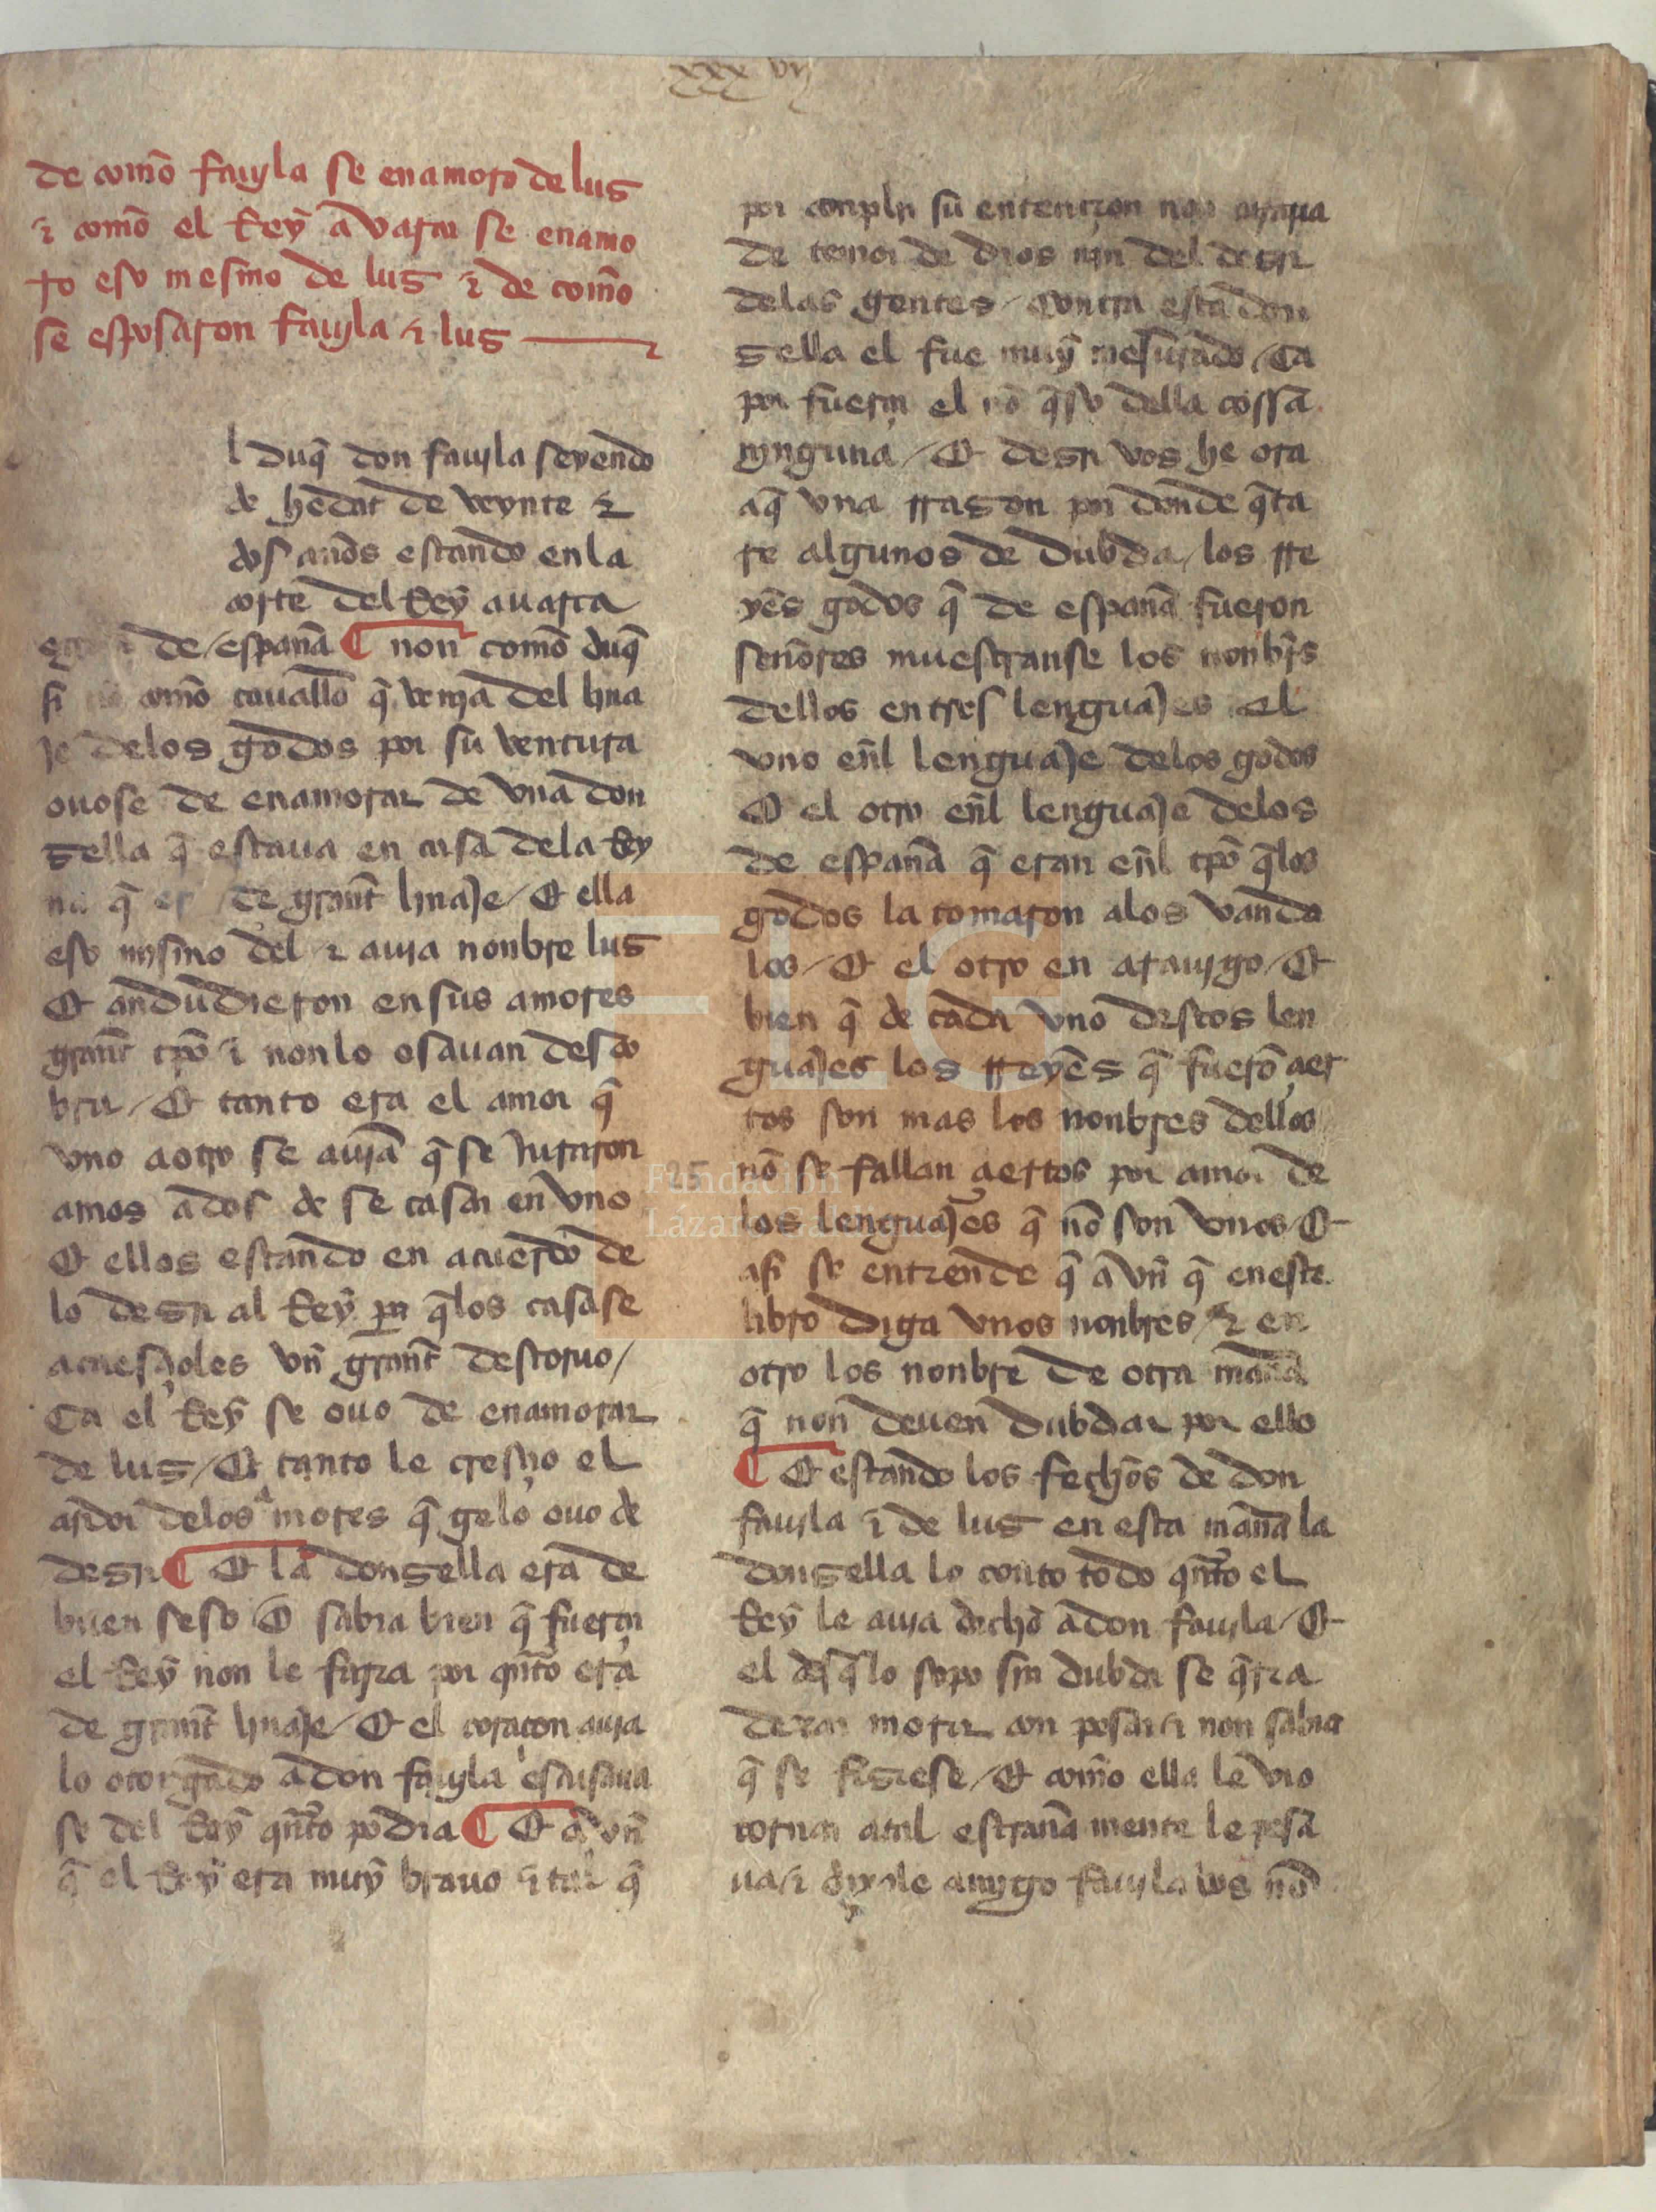 xxx vij
de comō fauyla se enamoro de lus
⁊ comō el Rey auarca se enamo
ro eso mesmo de lus ⁊ de comō
se esposaron fauyla ⁊ lus
l duq̄ don fauyla seyendo
de hedat de veynte ⁊
dos anōs estando en la
corte del Rey auarca
de españa ¶ non comō duq̄
comō cauallo q̄ venja del lina
je delos godos por su ventura
ouose de enamorar de vna don
sella q̄ estaua en casa dela Rey
na q̄ de grant linaje / Et ella
eso mismo del ⁊ auja nonbre lus
Et andudieron en sus amores
grant tpō ⁊ non lo osauan desco
brir / Et tanto era el amor q̄
vno a otro se aujā q̄ se juraron
amos ados de se casar en vno
Et ellos estando en acuerdo de
lo desir al Rey pa q̄los casase
acaesçioles vn̄ grant destoruo /
Ca el Rey se ouo de enamorar
de lus / Et tanto le cresçio el
ardor delos amores q̄ gelo ouo de
desir ¶ Et la donsella era de
buen seso Et sabia bien q̄ fuerça
el Rey non le faria por qn̄to era
de grant linaje / Et el coraçon auja
lo otorgado a don fauyla escusaua
se del Rey qn̄to podia ¶ Et avn̄
q̄ el Rey era muy brauo ⁊ tal q̄
por conplir su entençion non
de temor de dios nin del desir
delas gentes / Contra esta don
sella el fue muy mesurado / Ca
por fuerça el nō q̄so della cossa
njnguna / Et desir vos he ora
aq̄ vna rrason por donde q̄ta
re algunos de dubda / los rre
yes godos q̄ de españa fueron
señores muestranse los nonbrs
dellos en tres lenguajes el
vno eñl lenguaje delos godos
Et el otro eñl lenguaje delos
de españa q̄ eran eñl tpō q̄los
godos la tomaron alos vanda
los / Et el otro en arauygo / Et
bien q̄ de cada vno destos len
guajes los rreyes q̄ fuerō çier
tos son mas los nonbres dellos
nō se fallan çiertos por amor de
los lenguajes q̄ nō son vnos / Et
asi se entiende q̄ avn̄ q̄ en este
libro diga vnos nonbres / ⁊ en
otro los nonbre de otra manā
q̄ non deuen dubdar por ello
¶ Et estando los fechos de don
fauyla ⁊ de lus en esta manā la
donsella lo conto todo qn̄to el
Rey le auja dicho a don fauyla / Et
el desq̄lo sopo sin dubda se q̄ria
dexar morir con posar ⁊ non sabia
q̄ se fisiese / Et comō ella le vio
tornar atal estraña mente le pesa
ua ⁊ dixole amygo fauyla vos nō
Fundación
Lázaro Galdiano
FLG